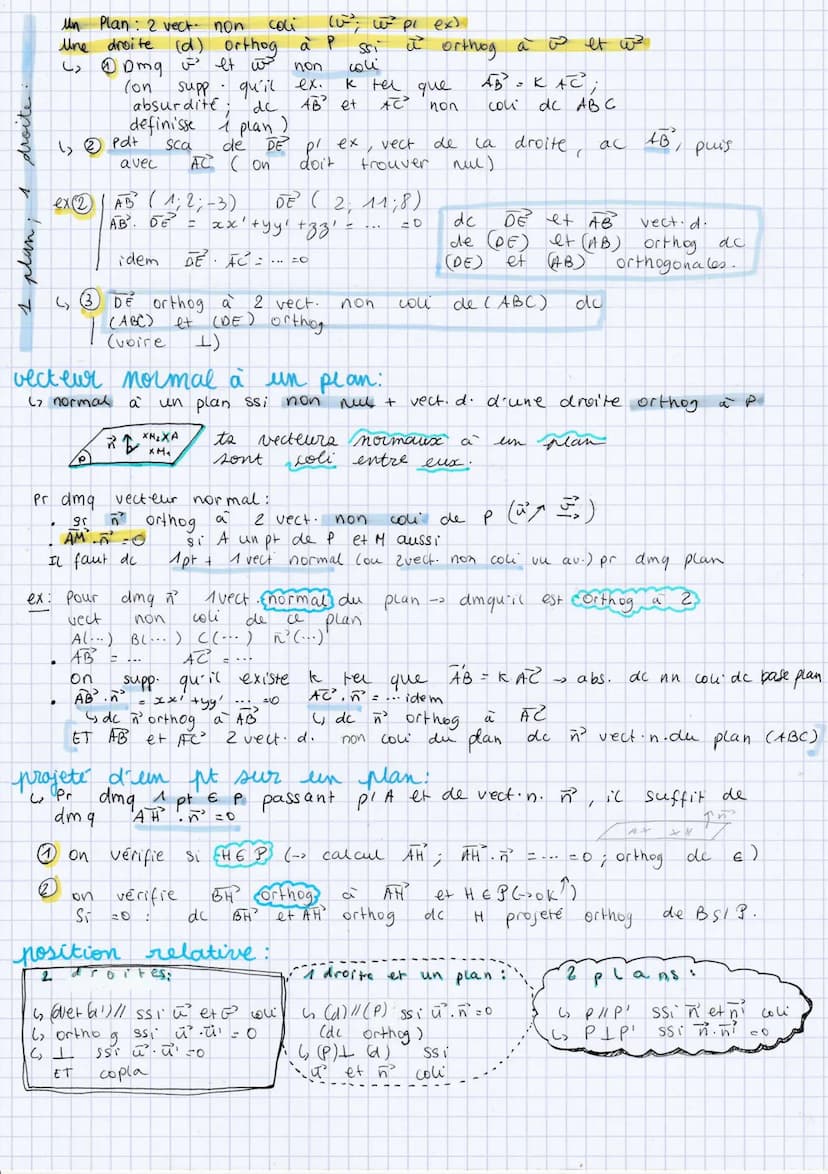 un Plan : 2 vect. non coli (v⃗ ; w⃗ p/ ex)
une droite (d) orthog à P ssi u⃗ orthog à v⃗ et w⃗
1 plan ; 1 droite :
↳ ① Dmq v⃗ et w⃗ non coli
(on supp. qu'il ex. k tel que AB⃗ = K AC⃗ ;
absurdité ; dc AB⃗ et AC⃗ non coli dc ABC
définisse 1 plan)
↳ ② Pdt sca de DE⃗ p/ ex, vect de la droite, ac AB⃗, puis
avec AC⃗ (on doit trouver nul)
ex② AB⃗ (1;2;-3) DE⃗ (2; 11;8)
AB⃗ . DE⃗ = xx'+yy'+zz' = ... = 0
idem DE⃗ . AC⃗ = ... = 0
dc DE⃗ et AB⃗ vect.d.
de (DE) et (AB) orthog dc
(DE) et (AB) orthogonales.
↳ ③ DE⃗ orthog à 2 vect. non coli de (ABC) dc
(ABC) et (DE) orthog
(voire ⊥)
vecteur normal à un plan :
↳ normal à un plan ssi non nul + vect.d. d'une droite orthog à P
P n⃗
ts vecteurs normaux à un plan
sont coli entre eux.
Pr dmq vecteur normal :
. si n⃗ orthog à 2 vect. non coli de P (u⃗ v⃗)
. AM⃗ . n⃗ = 0 si A un pt de P et M aussi
Il faut dc 1pt + 1 vect normal (ou 2vect. non coli vu av.) pr dmq plan
ex : Pour dmq n⃗ 1vect. normal du plan → dmqu'il est orthog à 2
vect non coli de ce plan
A(...) B(...) C(...) n⃗(...)
. AB⃗ = ... AC⃗ = ...
on supp. qu'il existe k tel que AB⃗ = k AC⃗ → abs. dc nn coli dc base plan
. AB⃗ . n⃗ = xx' + yy' ... = 0 AC⃗ . n⃗ = ... idem
↳ dc n⃗ orthog à AB⃗ ↳ dc n⃗ orthog à AC⃗
[ET AB⃗ et AC⃗ 2 vect.d. non coli du plan dc n⃗ vect.n.du plan (ABC)]
projeté d'un pt sur un plan :
↳ Pr dmq 1 pt ∈ P passant p/ A et de vect.n. n⃗, il suffit de
dmq AH⃗ . n⃗ = 0
AX XH n⃗
① on vérifie si H∈P (→ calcul AH⃗ ; AH⃗ . n⃗ = ... = 0 ; orthog dc ∈)
② on vérifie BH⃗ orthog à AH⃗ et H∈P (→ok↑)
Si =0 : dc BH⃗ et AH⃗ orthog dc H projeté orthog de B s/ P.
position relative :
2 droites :
↳ (d) et (d') // ssi u⃗ et v⃗ coli
↳ orthog ssi u⃗ . u⃗' = 0
↳ ⊥ ssi u⃗ . u⃗' = 0
ET copla
1 droite et un plan :
↳ (d) // (P) ssi u⃗ . n⃗ = 0
(dc orthog)
↳ (P) ⊥ (d) ssi
u⃗ et n⃗ coli
2 plans :
↳ P // P' ssi n⃗ et n⃗' coli
↳ P ⊥ P' ssi n⃗ . n⃗' = 0